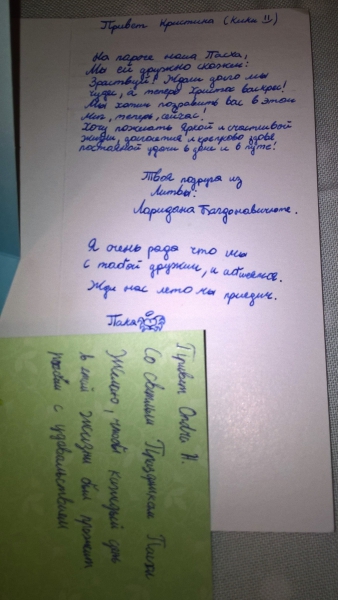 Привет Кристина (Кики !!)
На пароге наша Пасха,
Мы ей дружно скажем:
Здраствуй! Ждали долго мы
чуда, а теперь Христос васкрес!
Мы хотим поздравить вас в этот
миг, теперь, сейчас!
Хочу пожелать яркой и счастливой
жизни, достатка и крепкого здоровья
постояной удачи в доме и в пути!
Твоя подруга из
Литвы:
Лоридана Багдонавичюте.
Я очень рада что мы
с табой дружим, и абщаемся.
Жди нас лето мы приедим.
Пака
Привет Ondra H.
Со светлым Праздником Пасхи
Желаю, чтобы каждый день
в этой жизни был прожит
с удавальствием